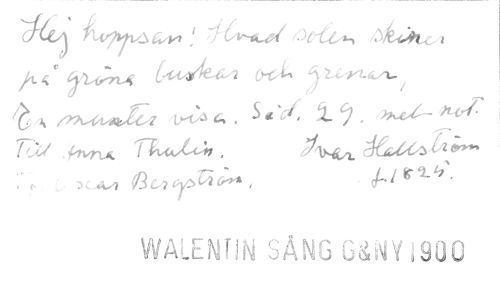 Hej hoppsan! Hvad solen skiner
på gröna buskar och grenar,
En munter visa. Sid. 29. met not.
Till Anna Thulin. Ivar Hallström
Oscar Bergström. f. 1825.
WALENTIN SÅNG G&NY 1900